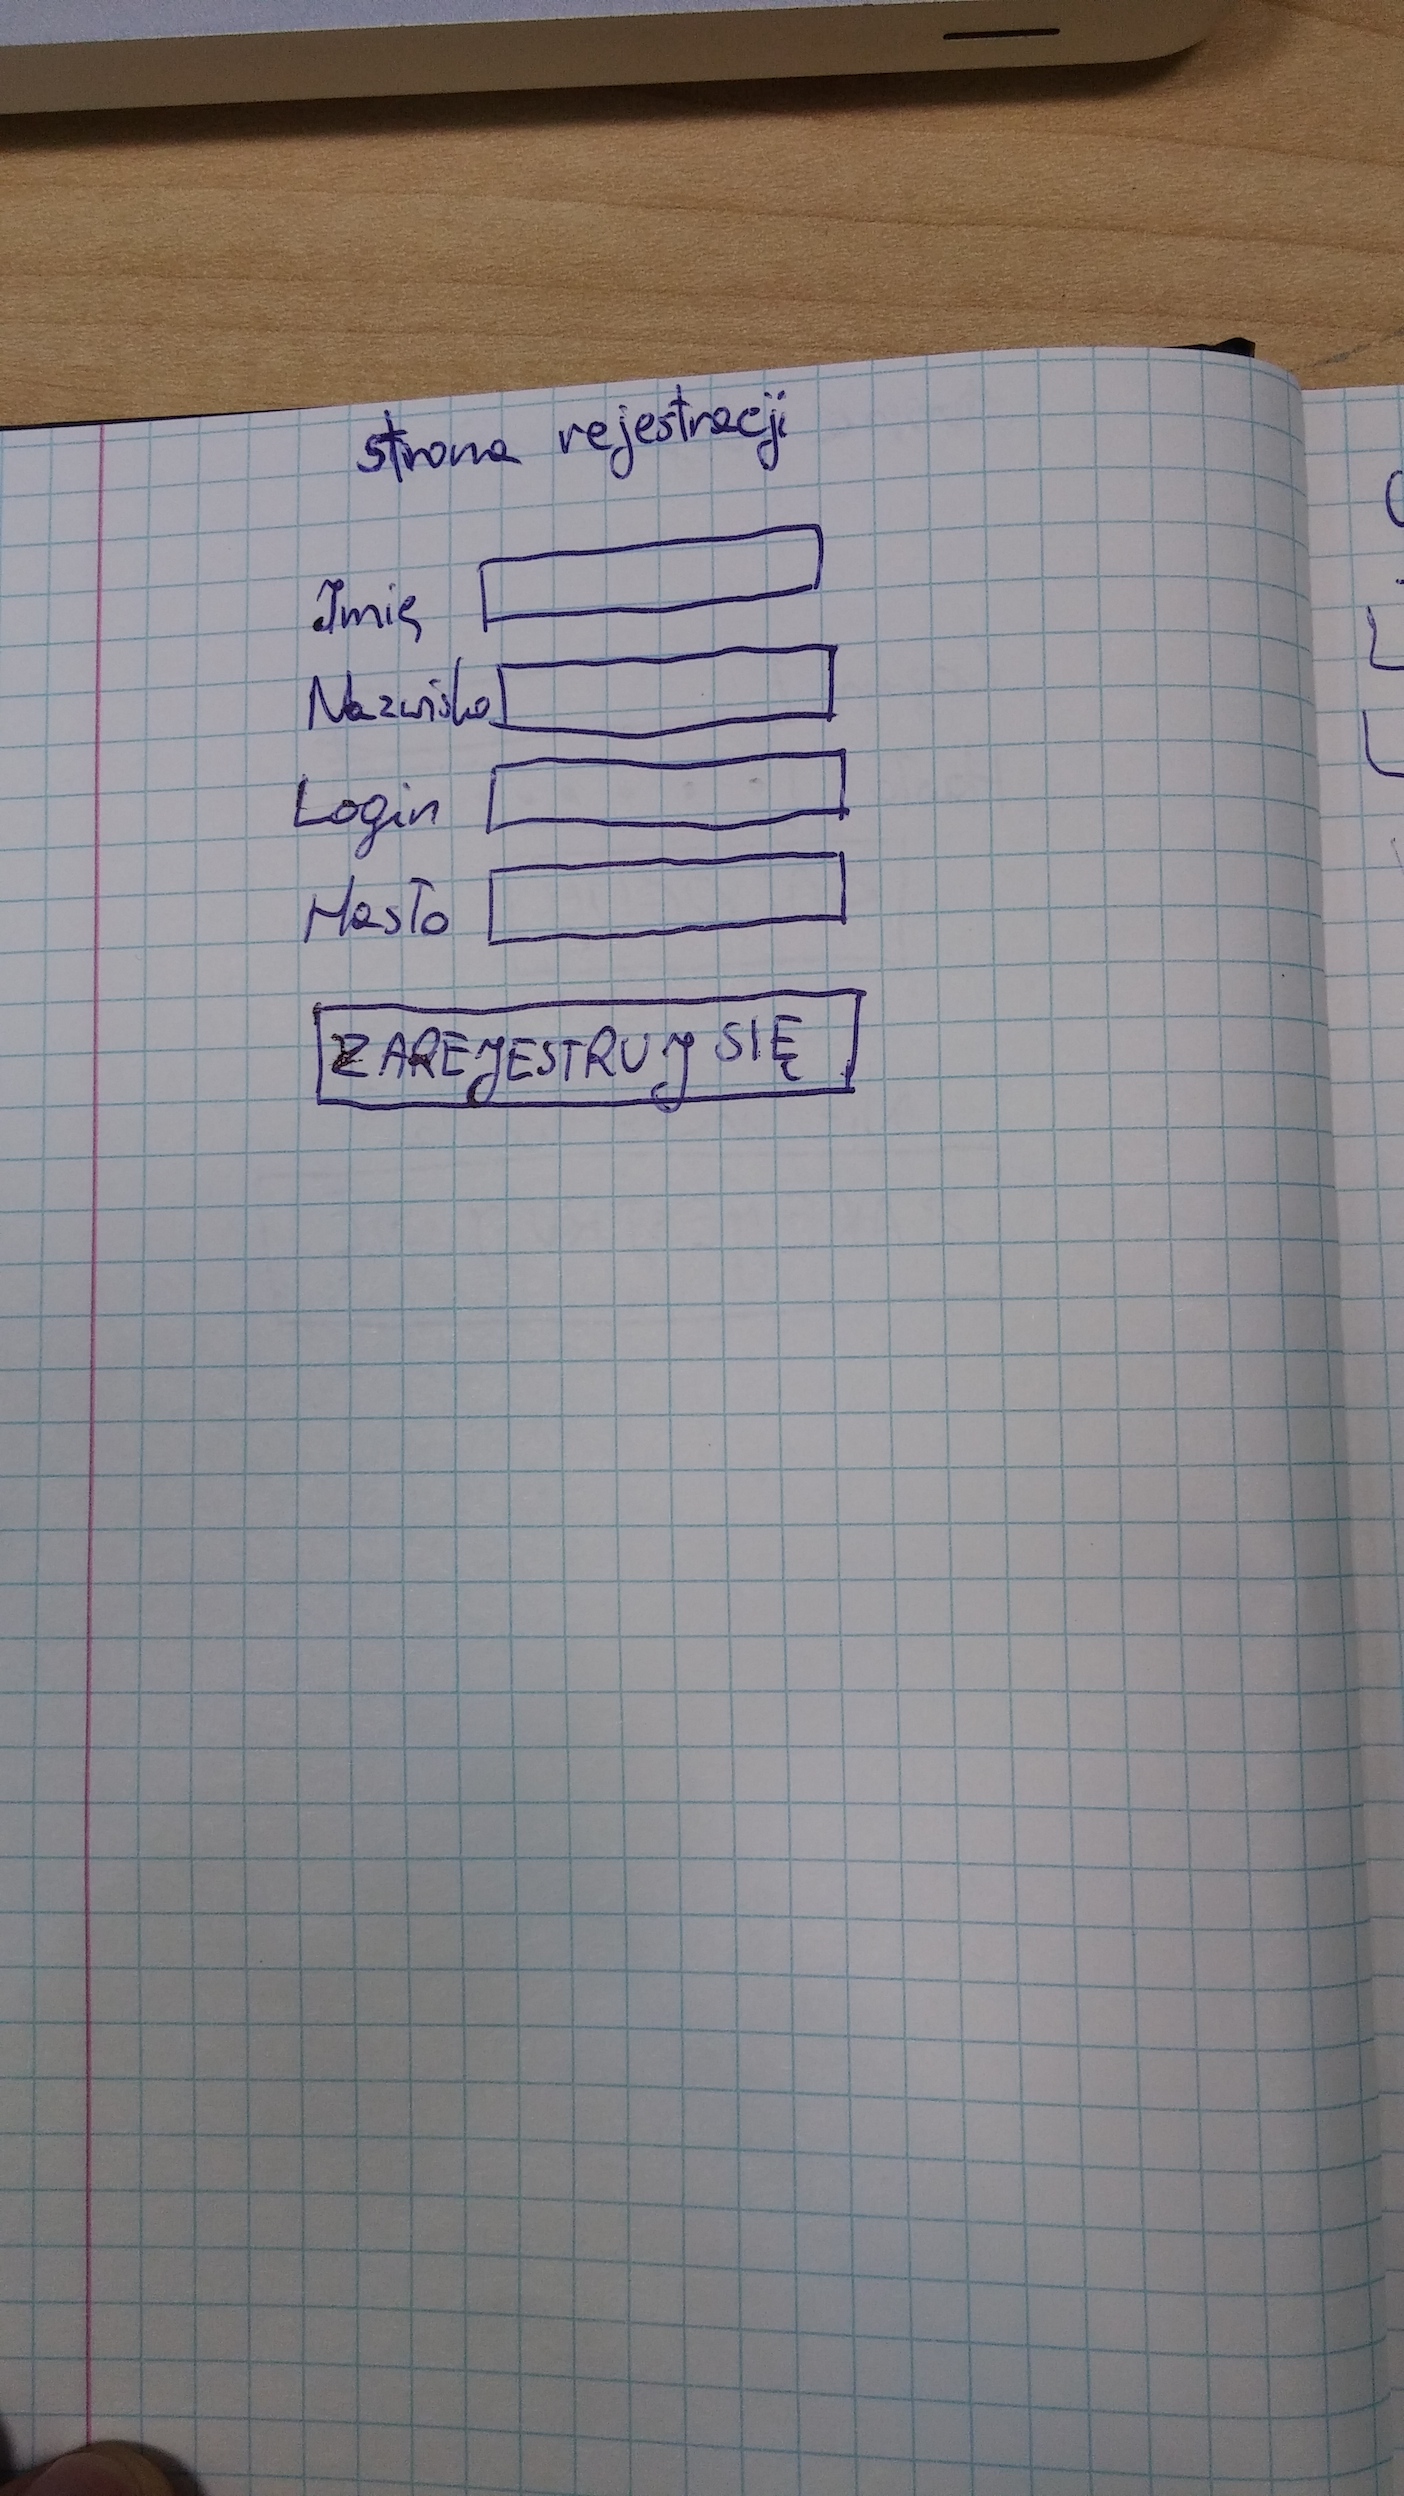 strona rejestracji
Imię
Nazwisko
Login
Hasło
ZAREJESTRUJ SIĘ